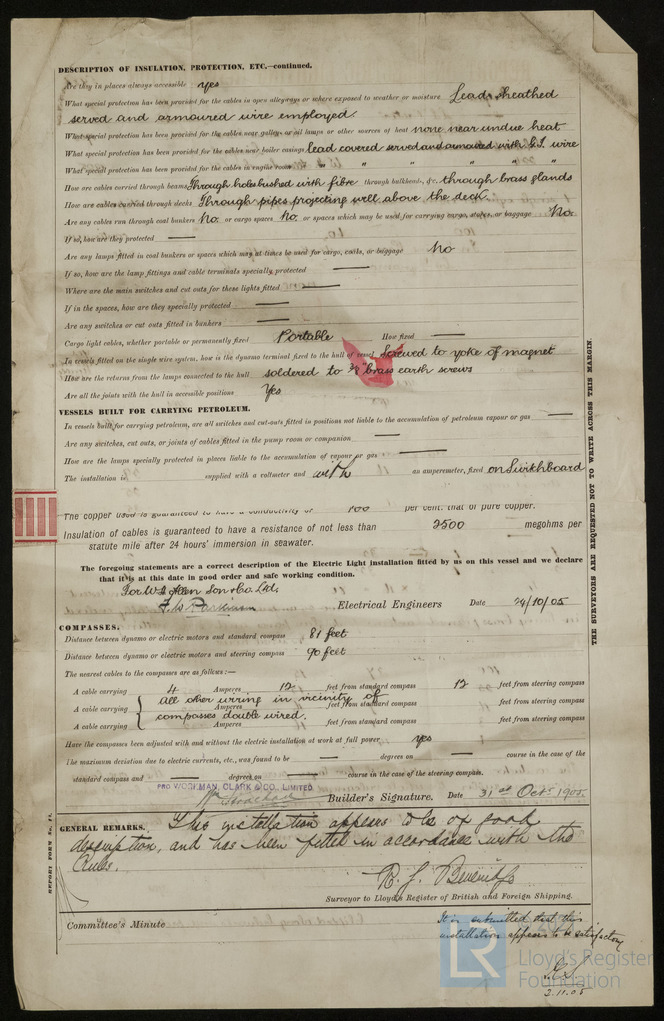 DESCRIPTION OF INSULATION, PROTECTION, ETC.—continued.
Are they in places always accessible Yes
What special protection has been provided for the cables in open alleyways or where exposed to weather or moisture Lead sheathed
served and armoured wire employed.
What special protection has been provided for the cables near galleys or oil lamps or other sources of heat none near undue heat
What special protection has been provided for the cables near boiler casings lead covered served and armoured with G.I. wire
What special protection has been provided for the cables in engine room " " " " " "
How are cables carried through beams Through holes bushed with fibre through bulkheads, &c. through brass glands
How are cables carried through decks Through pipes projecting well above the deck.
Are any cables run through coal bunkers No. or cargo spaces No. or spaces which may be used for carrying cargo, stores, or baggage No.
If so, how are they protected —
Are any lamps fitted in coal bunkers or spaces which may at times be used for cargo, coals, or baggage No
If so, how are the lamp fittings and cable terminals specially protected —
Where are the main switches and cut outs for these lights fitted —
If in the spaces, how are they specially protected —
Are any switches or cut outs fitted in bunkers —
Cargo light cables, whether portable or permanently fixed Portable How fixed —
In vessels fitted on the single wire system, how is the dynamo terminal fixed to the hull of vessel Screwed to yoke of magnet
How are the returns from the lamps connected to the hull soldered to 3/8" brass earth screws
Are all the joints with the hull in accessible positions Yes
VESSELS BUILT FOR CARRYING PETROLEUM.
In vessels built for carrying petroleum, are all switches and cut-outs fitted in positions not liable to the accumulation of petroleum vapour or gas —
Are any switches, cut outs, or joints of cables fitted in the pump room or companion —
How are the lamps specially protected in places liable to the accumulation of vapour or gas —
The installation is supplied with a voltmeter and with an amperemeter, fixed on Switchboard
The copper used is guaranteed to have a conductivity of 100 per cent. that of pure copper.
Insulation of cables is guaranteed to have a resistance of not less than 2500 megohms per
statute mile after 24 hours' immersion in seawater.
The foregoing statements are a correct description of the Electric Light installation fitted by us on this vessel and we declare
that it is at this date in good order and safe working condition.
For W.H. Allen Son & Co. Ltd.
Parkinson Electrical Engineers Date 28/10/05
COMPASSES.
Distance between dynamo or electric motors and standard compass 81 feet
Distance between dynamo or electric motors and steering compass 90 feet
The nearest cables to the compasses are as follows:—
A cable carrying 4 Amperes 12 feet from standard compass 12 feet from steering compass
A cable carrying all other wiring in vicinity of feet from standard compass feet from steering compass
A cable carrying compasses double wired. Amperes feet from standard compass feet from steering compass
Have the compasses been adjusted with and without the electric installation at work at full power yes
The maximum deviation due to electric currents, etc., was found to be — degrees on — course in the case of the
standard compass and — degrees on — course in the case of the steering compass.
PRO WORKMAN, CLARK & CO., LIMITED
Builder's Signature. Date 31st Octr 1905
GENERAL REMARKS. This installation appears to be of good
description, and has been fitted in accordance with the
Rules.
Surveyor to Lloyd's Register of British and Foreign Shipping.
Committee's Minute
It is submitted that this
installation appears to be satisfactory
2.11.05
THE SURVEYORS ARE REQUESTED NOT TO WRITE ACROSS THIS MARGIN.
REPORT FORM No.
LR
Lloyd's Register
Foundation